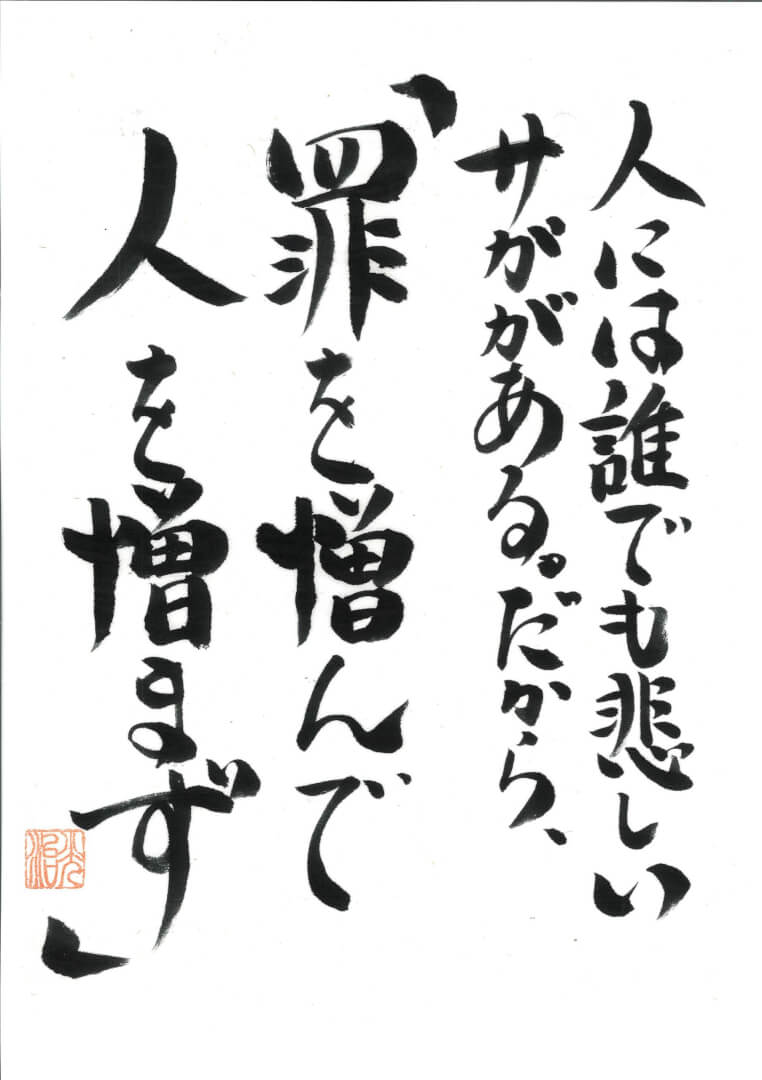 人には誰でも悲しい
サががある。だから、
「罪を憎んで
人を憎まず」